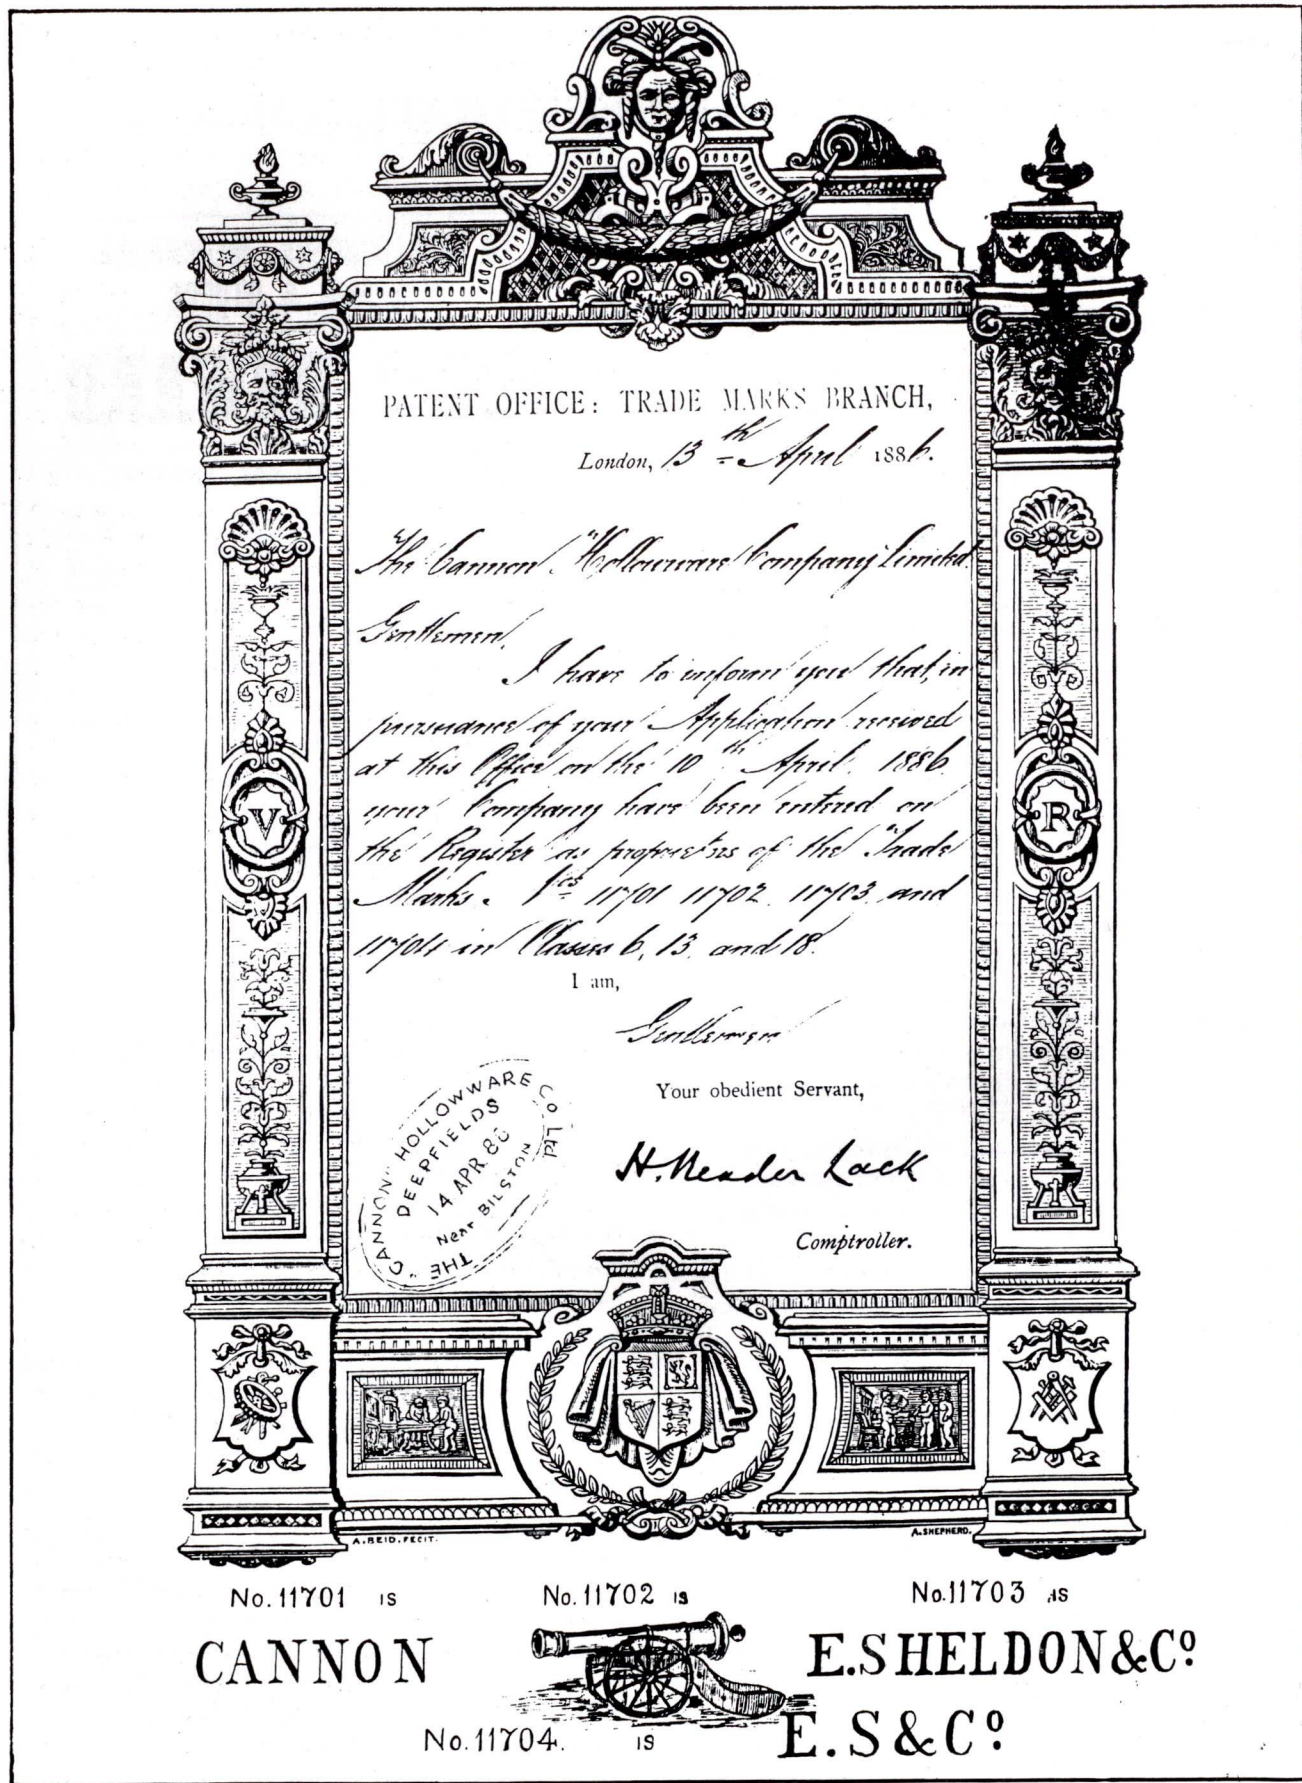 PATENT OFFICE: TRADE MARKS BRANCH,
London, 13th April 1886.
The Cannon Hollowware Company Limited.
Gentlemen,
I have to inform you that, in
pursuance of your Application received
at this Office on the 10th April. 1886
your Company have been entered on
the Register as proprietors of the Trade
Marks. Nos 11701 11702. 11703. and
11704 in Classes 6, 13, and 18.
I am,
Gentlemen
Your obedient Servant,
H. Reader Lack
Comptroller.
THE "CANNON" HOLLOWWARE Co Ltd
DEEPFIELDS
14 APR. 86
Near BILSTON
V
R
A. REID. FECIT.
A. SHEPHERD.
No. 11701 IS
No. 11702 IS
No. 11703 IS
CANNON
E. SHELDON & Co.
No. 11704. IS
E. S & Co.